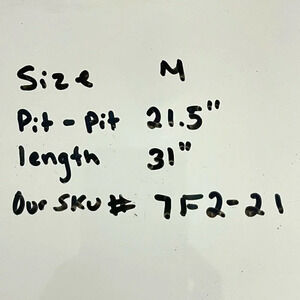 Size M
Pit-Pit 21.5"
length 31"
Our SKU # 7F2-21